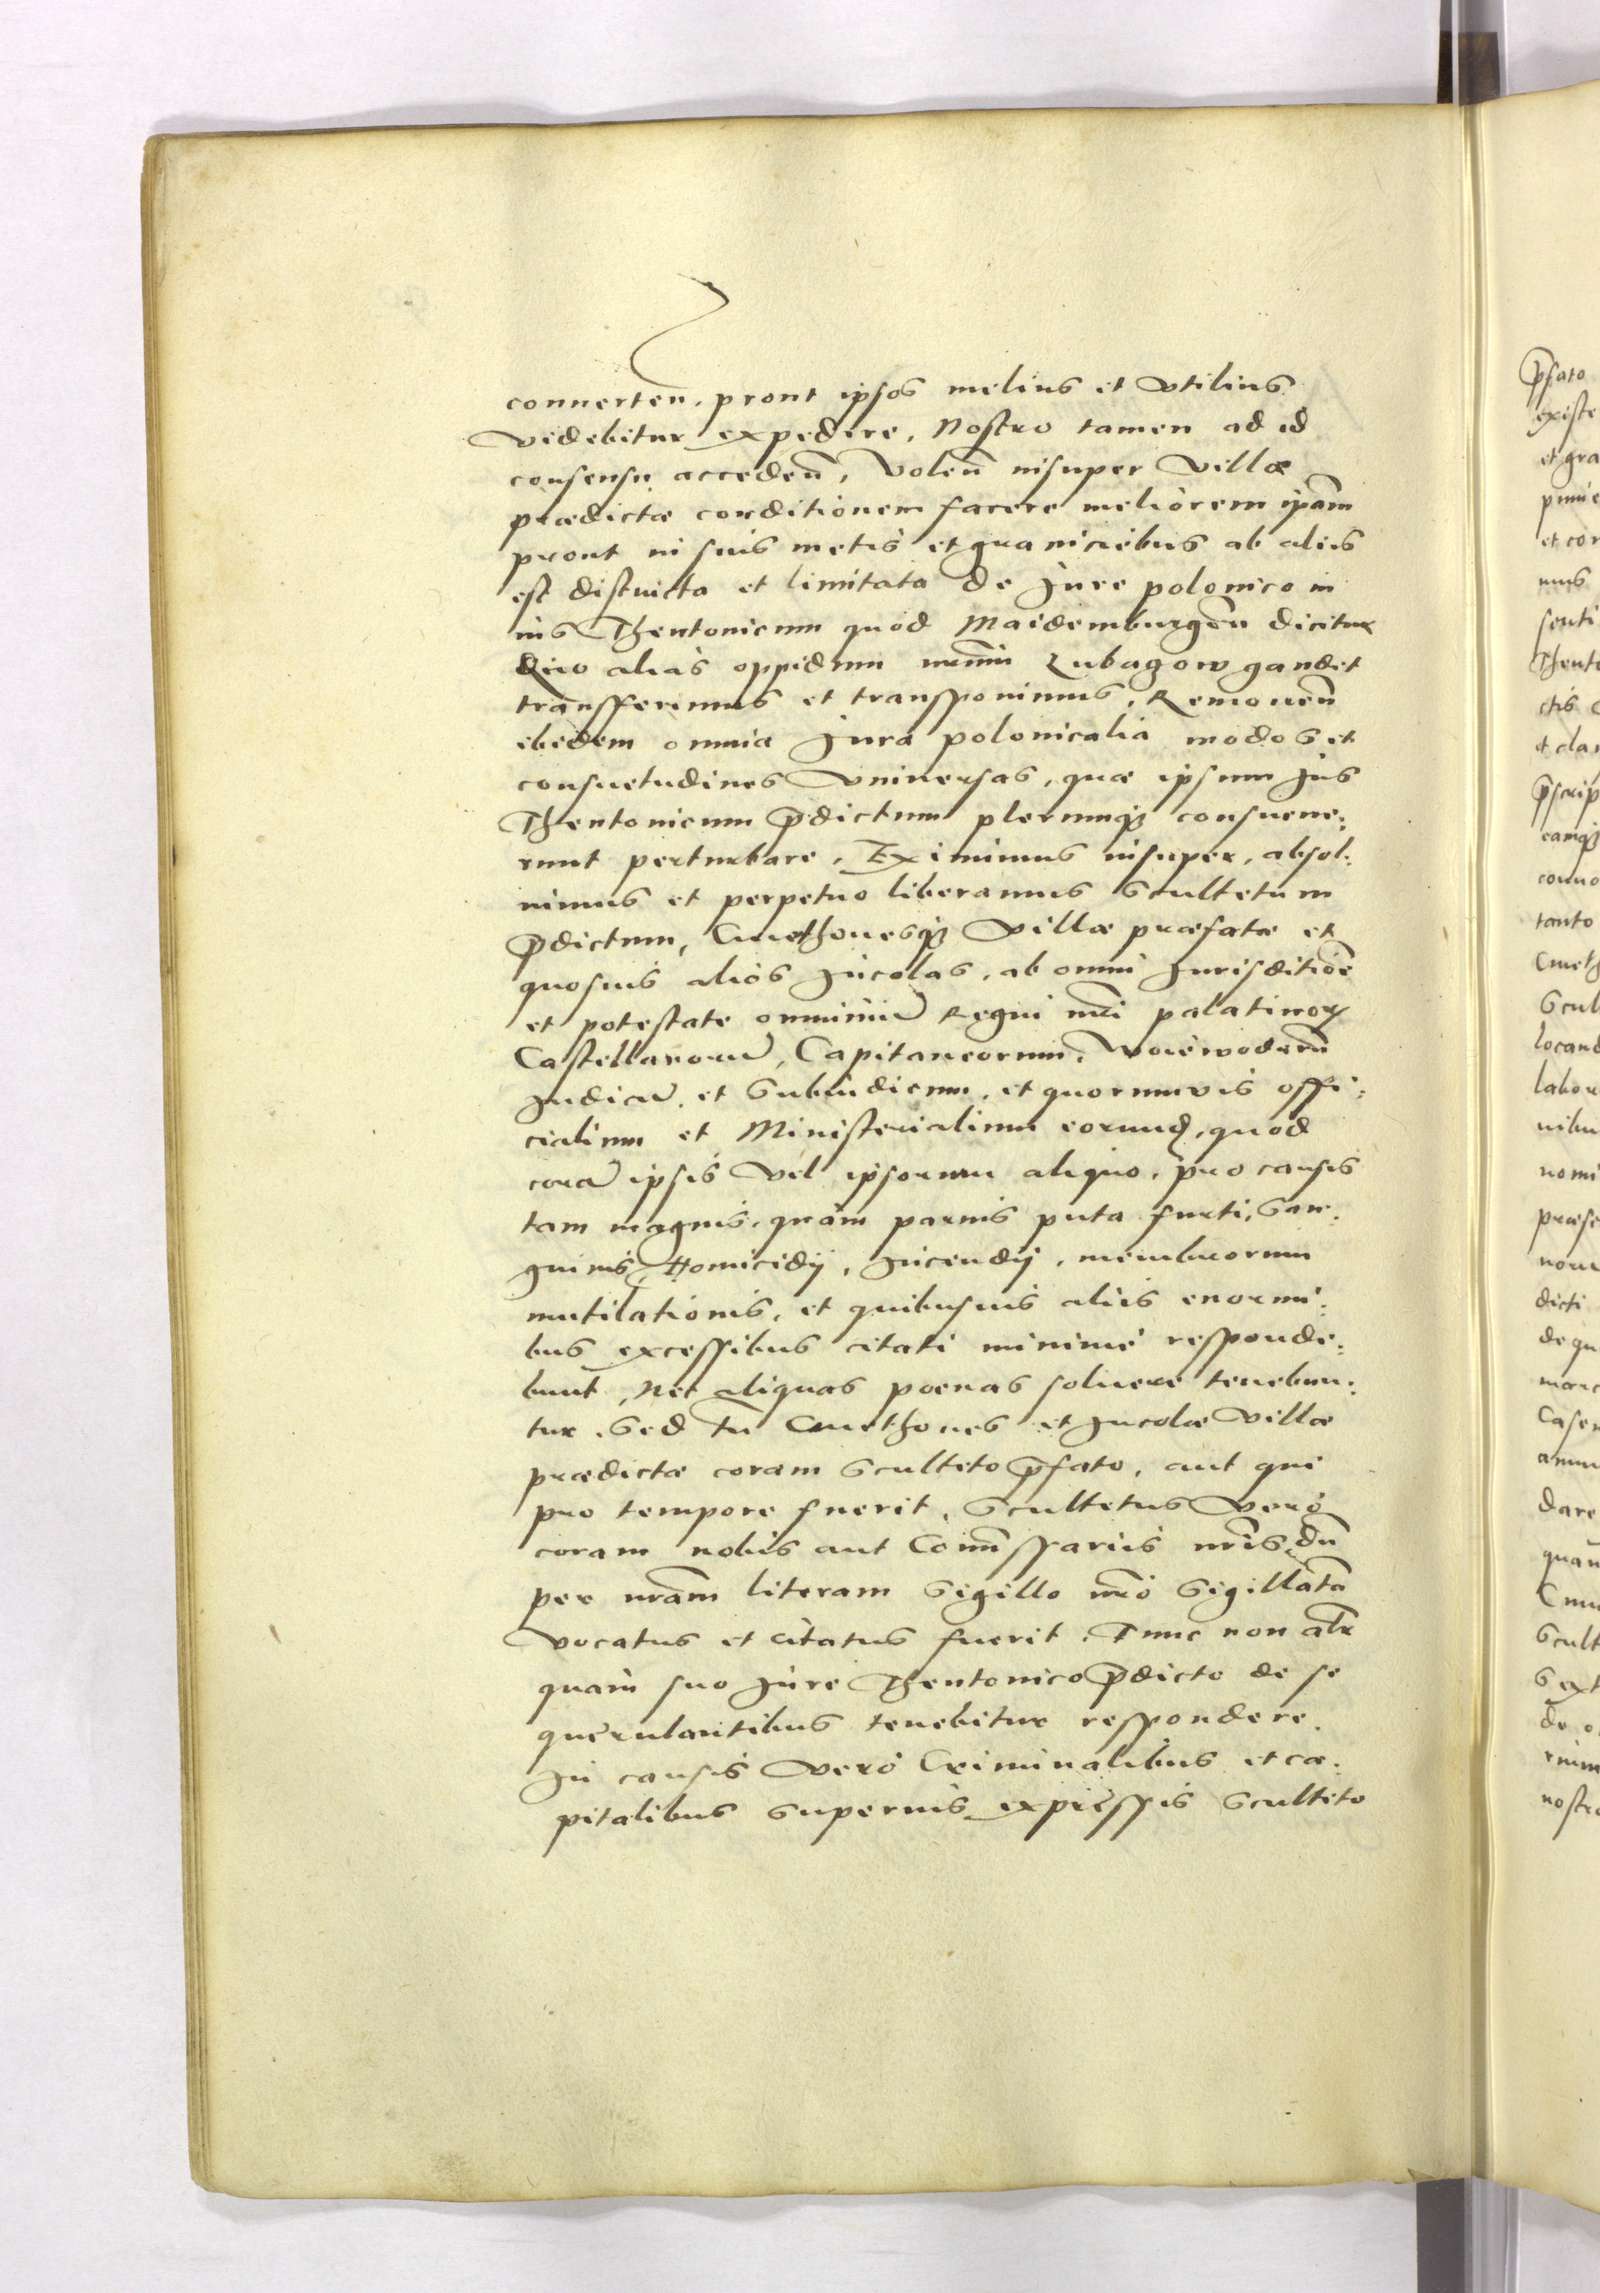 conuerten. prout ipsos melius et vtilius
videbitur expedire, Nostro tamen ad id
consensu acceden̄, Volen̄ insuper Villæ
prædictæ conditionem facere meliorem ip̄am
prout in suis metis et graniciebus ab aliis
est distincta et limitata de Jure polonico in
ius Theutonicum quod Maidemburgen̄ dicitur
quo alias oppidum nr̄um gaudet
transfferimus et transponimus, Remouen̄
ibidem omnia Jura polonicalia modos et
consuetudines vniuersas, quæ ipsum Jus
Theutonicum p̄dictum plerumqꝫ consueue:
runt perturbare. Eximimus insuper, absol:
uimus et perpetuo liberamus Scultetum
p̄dictum, Cmethonesqꝫ Villæ præfatæ et
quosuis alios Jncolas, ab omni Jurisditiōe
et potestate omnium̄ Regni nr̄i palatinoꝝ
Castellanorum̄, Capitaneorum, Woiewodarum̄
Judicum̄, et Subiudicum, et quorumvis offi:
cialium et Ministerialium eorund, quod
coram̄ ipsis vel ipsorum aliquo, pro causis
tam magnis, quàm paruis puta furti, San:
guinis, Homicidij, Jncendij, membrorum
mutilationis, et quibusuis aliis enormi:
bus excessibus citati minimè responde:
bunt, Nec aliquas poenas soluere tenebun:
tur, Sed tn̄ Cmethones et Jncolæ Villæ
prædictæ coram Sculteto p̄fato, aut qui
pro tempore fuerit, Scultetus verò
coram nobis aut Com̄issariis nr̄is, dū
per nr̄am literam Sigillo nr̄o Sigillatā
vocatus et citatus fuerit, Tunc non alr̄
quàm suo Jure Theutonico p̄dicto de se
querulantibus tenebitur respondere.
Jn causis verò Criminalibus et ca:
pitalibus superius expressis Sculteto